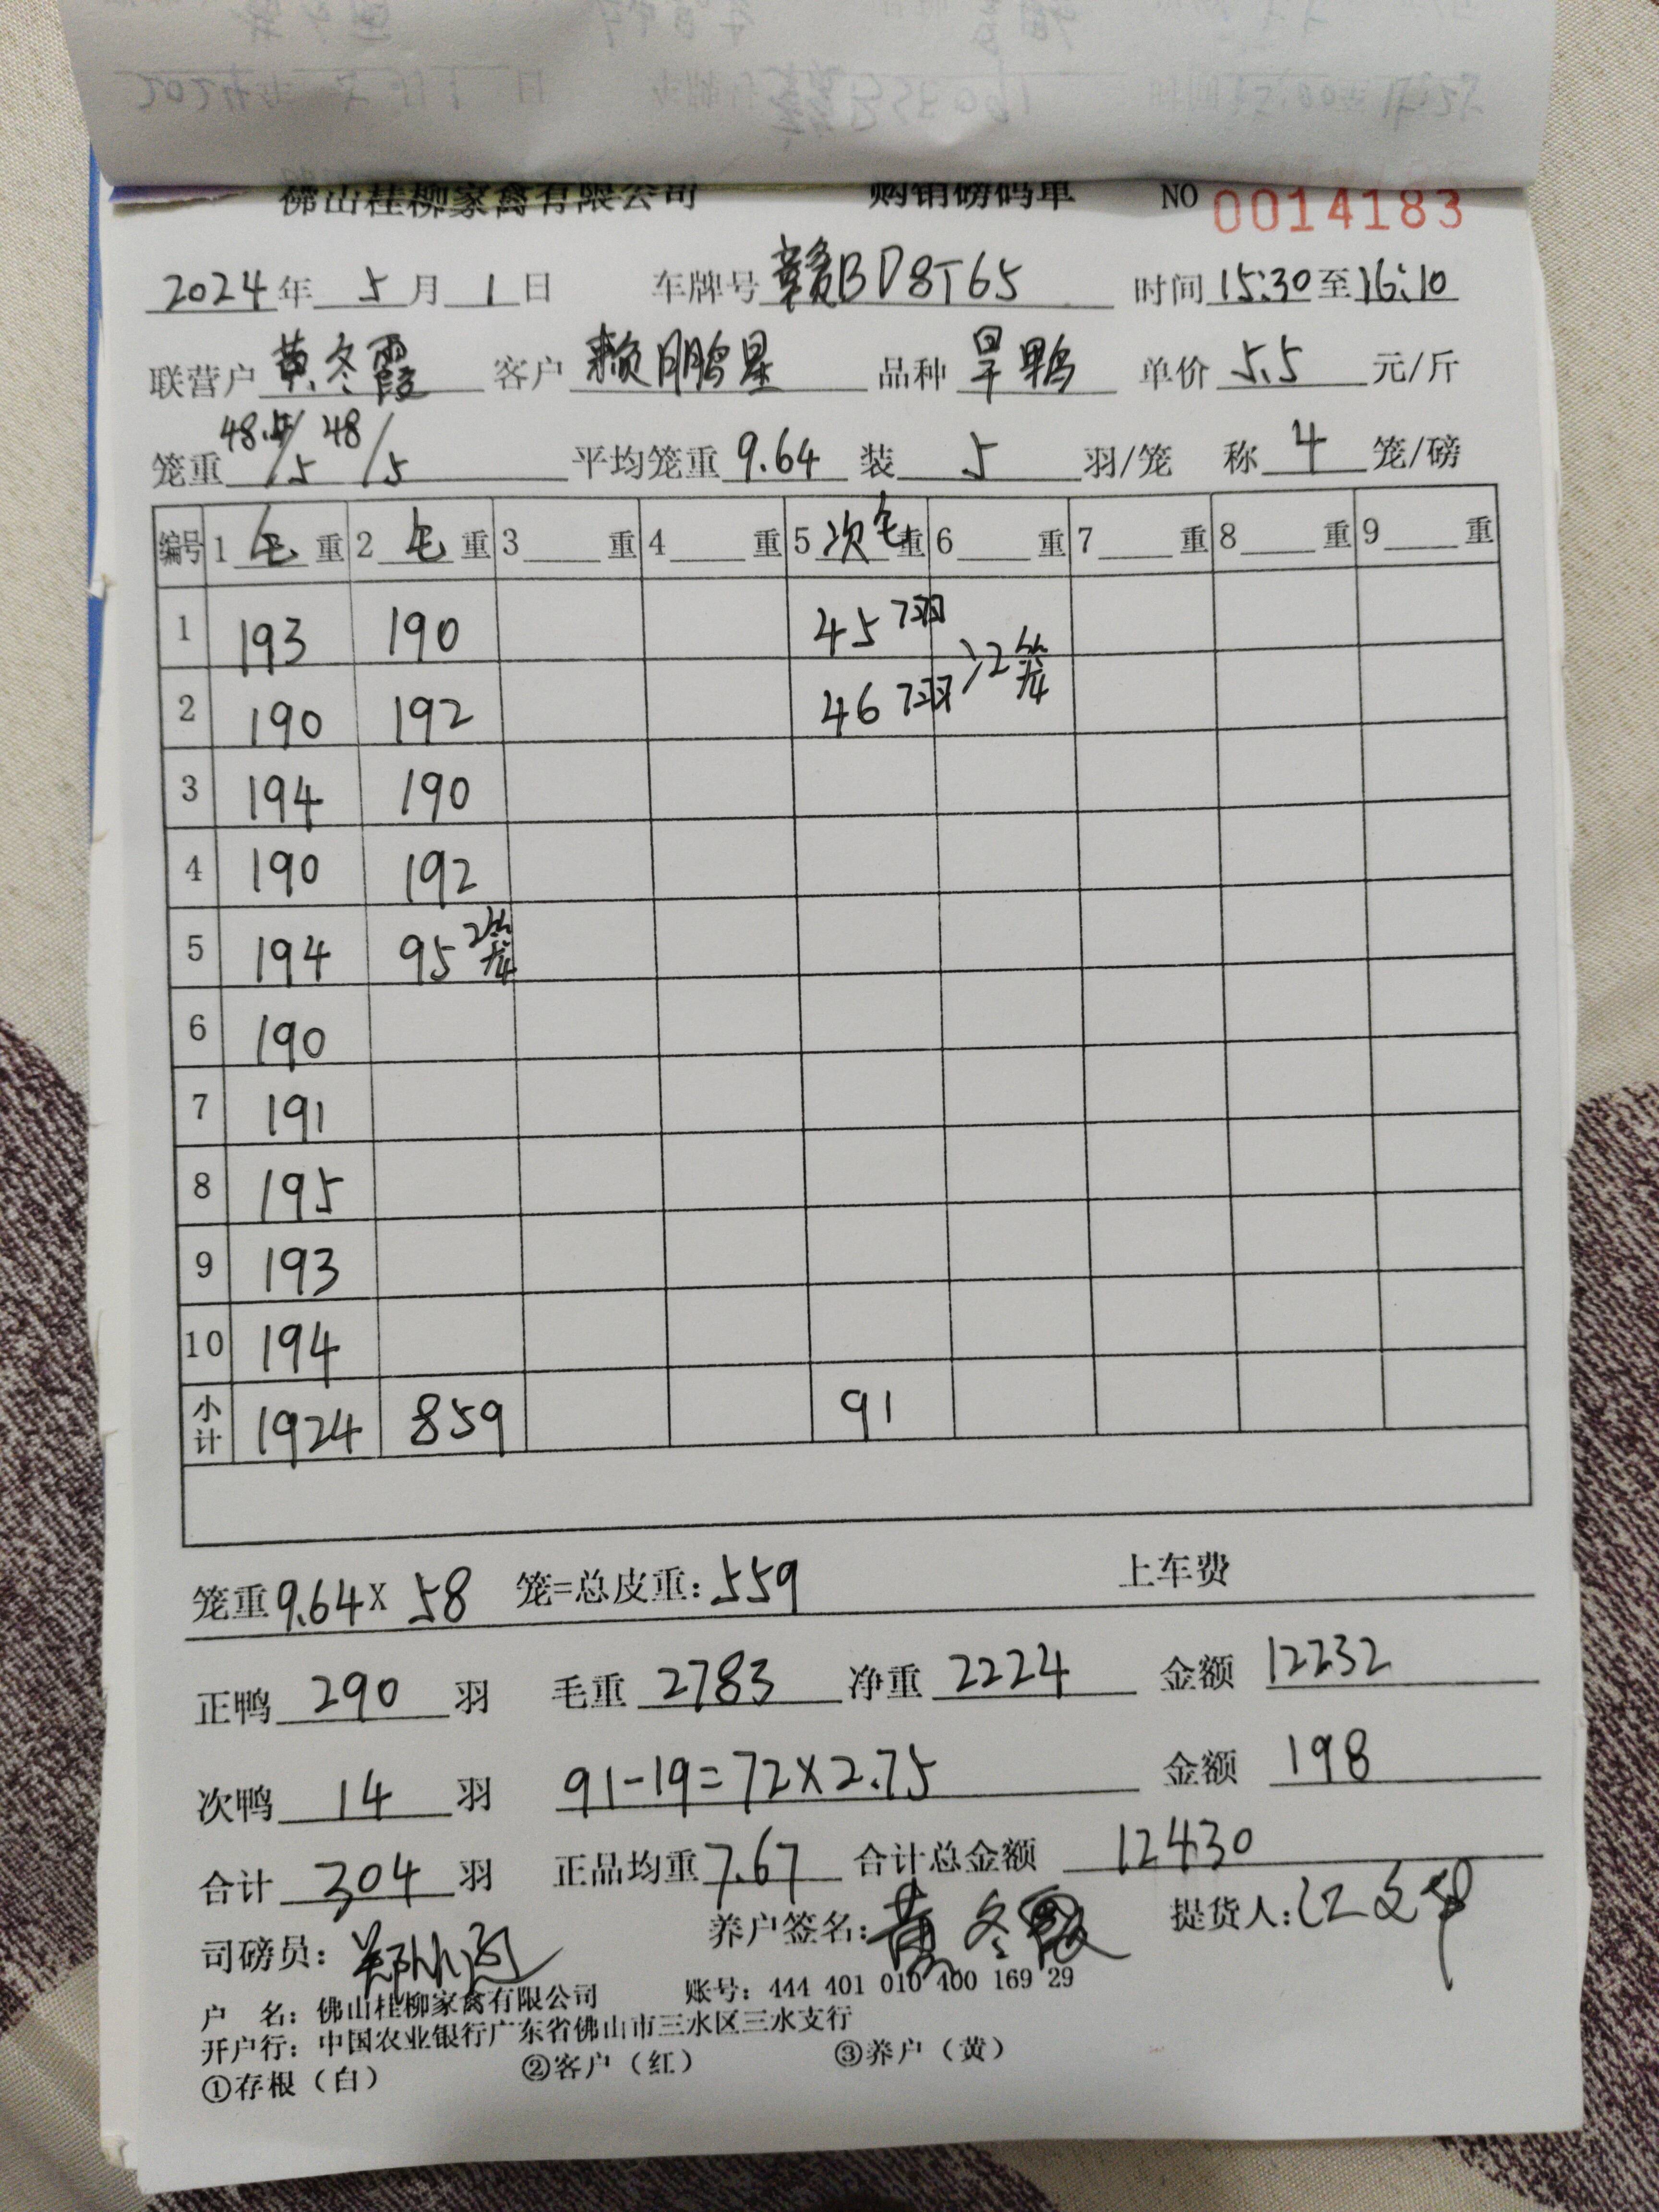 佛山桂柳家禽有限公司 购销磅码单 NO 0014183
2024年 5月 1日 车牌号 赣BD8T65 时间 15:30至16:10
联营户 黄冬霞 客户 赖鹏星 品种 旱鸭 单价 5.5 元/斤
笼重 48.5/5 48/5 平均笼重 9.64 装 5 羽/笼 称 4 笼/磅
编号 1 毛 重 2 毛 重 3 重 4 重 5 次毛 重 6 重 7 重 8 重 9 重
1 193 190 45 7羽
2 190 192 46 7羽 }2笼
3 194 190
4 190 192
5 194 95 2笼
6 190
7 191
8 195
9 193
10 194
小计 1924 859 91
笼重 9.64 X 58 笼=总皮重: 559 上车费
正鸭 290 羽 毛重 2783 净重 2224 金额 12232
次鸭 14 羽 91-19=72×2.75 金额 198
合计 304 羽 正品均重 7.67 合计总金额 12430
司磅员: 养户签名: 黄冬霞 提货人:
户 名: 佛山桂柳家禽有限公司 账号: 444 401 010 400 169 29
开户行: 中国农业银行广东省佛山市三水区三水支行
①存根(白) ②客户(红) ③养户(黄)